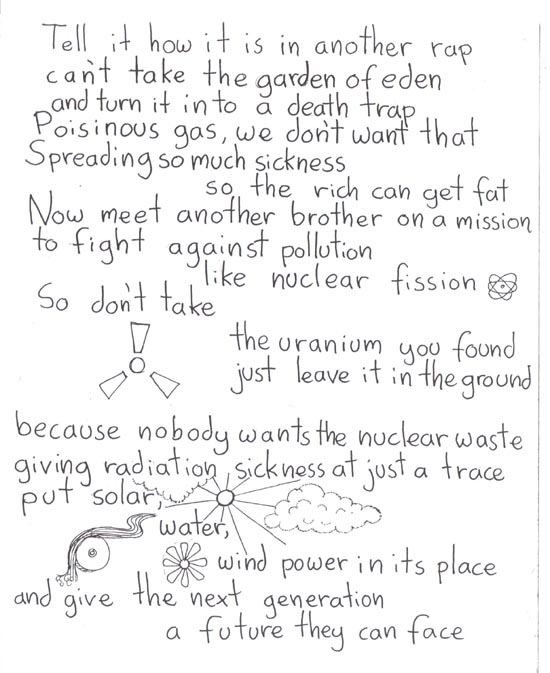 Tell it how it is in another rap
can't take the garden of eden
and turn it into a death trap
Poisinous gas, we don't want that
Spreading so much sickness
so the rich can get fat
Now meet another brother on a mission
to fight against pollution
like nuclear fission
So don't take
the uranium you found
just leave it in the ground
because nobody wants the nuclear waste
giving radiation sickness at just a trace
put solar,
water,
wind power in its place
and give the next generation
a future they can face